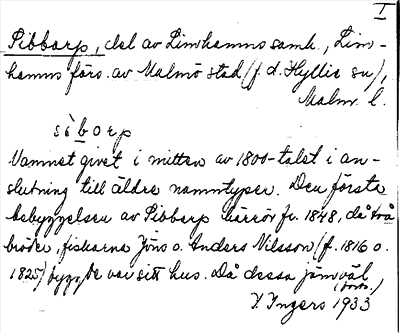 I
Sibbarp, del av Limhamns samh., Lim-
hamns förs. av Malmö stad (f. d. Hyllie sn),
Malm. l.
sìborp
Namnet givet i mitten av 1800-talet i an-
slutning till äldre namntyper. Den första
bebyggelsen av Sibbarp härrör fr. 1848, då två
bröder, fiskarna Jöns o. Anders Nilsson (f. 1816 o.
1825) byggde var sitt hus. Då dessa jämväl
(forts.)
I. Ingers 1933